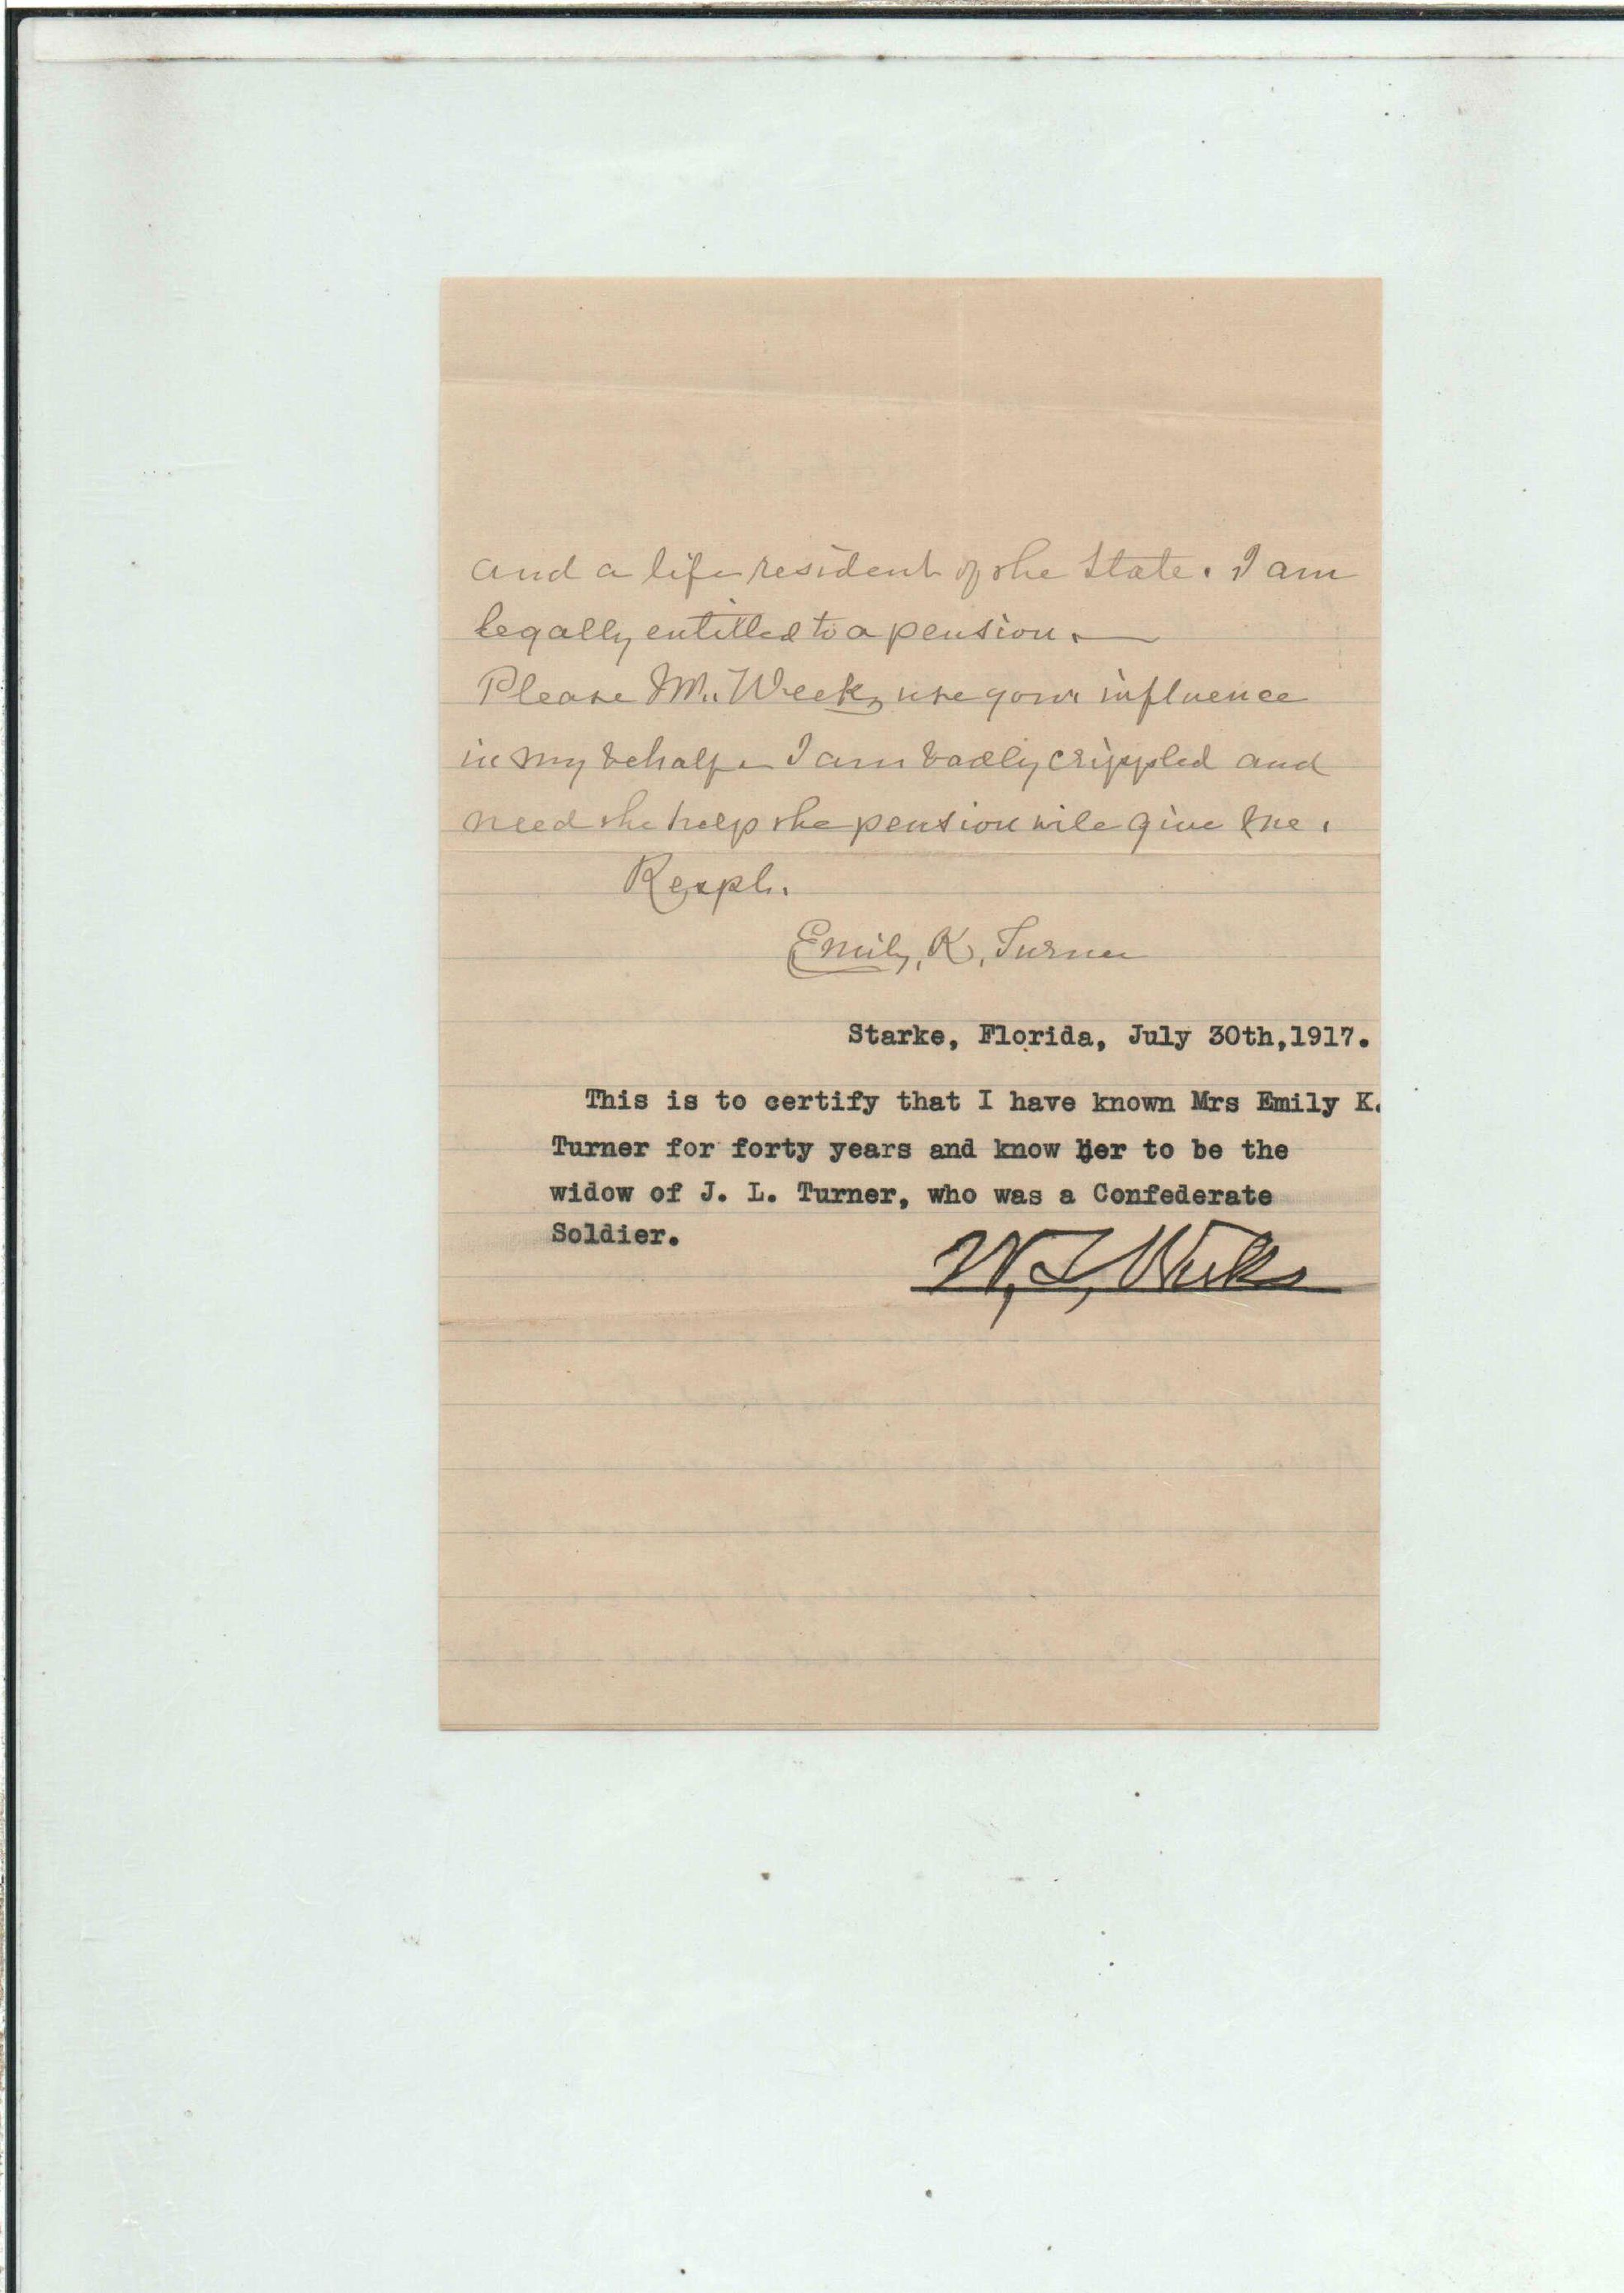 and a life resident of the State. I am
legally entitled to a pension. —
Please Mr. Weeks use your influence
in my behalf – I am badly crippled and
need the help the pension will give me.
Respt.
Emily, K, Turner
Starke, Florida, July 30th,1917.
This is to certify that I have known Mrs Emily K.
Turner for forty years and know her to be the
widow of J. L. Turner, who was a Confederate
Soldier.
W. T. Weeks